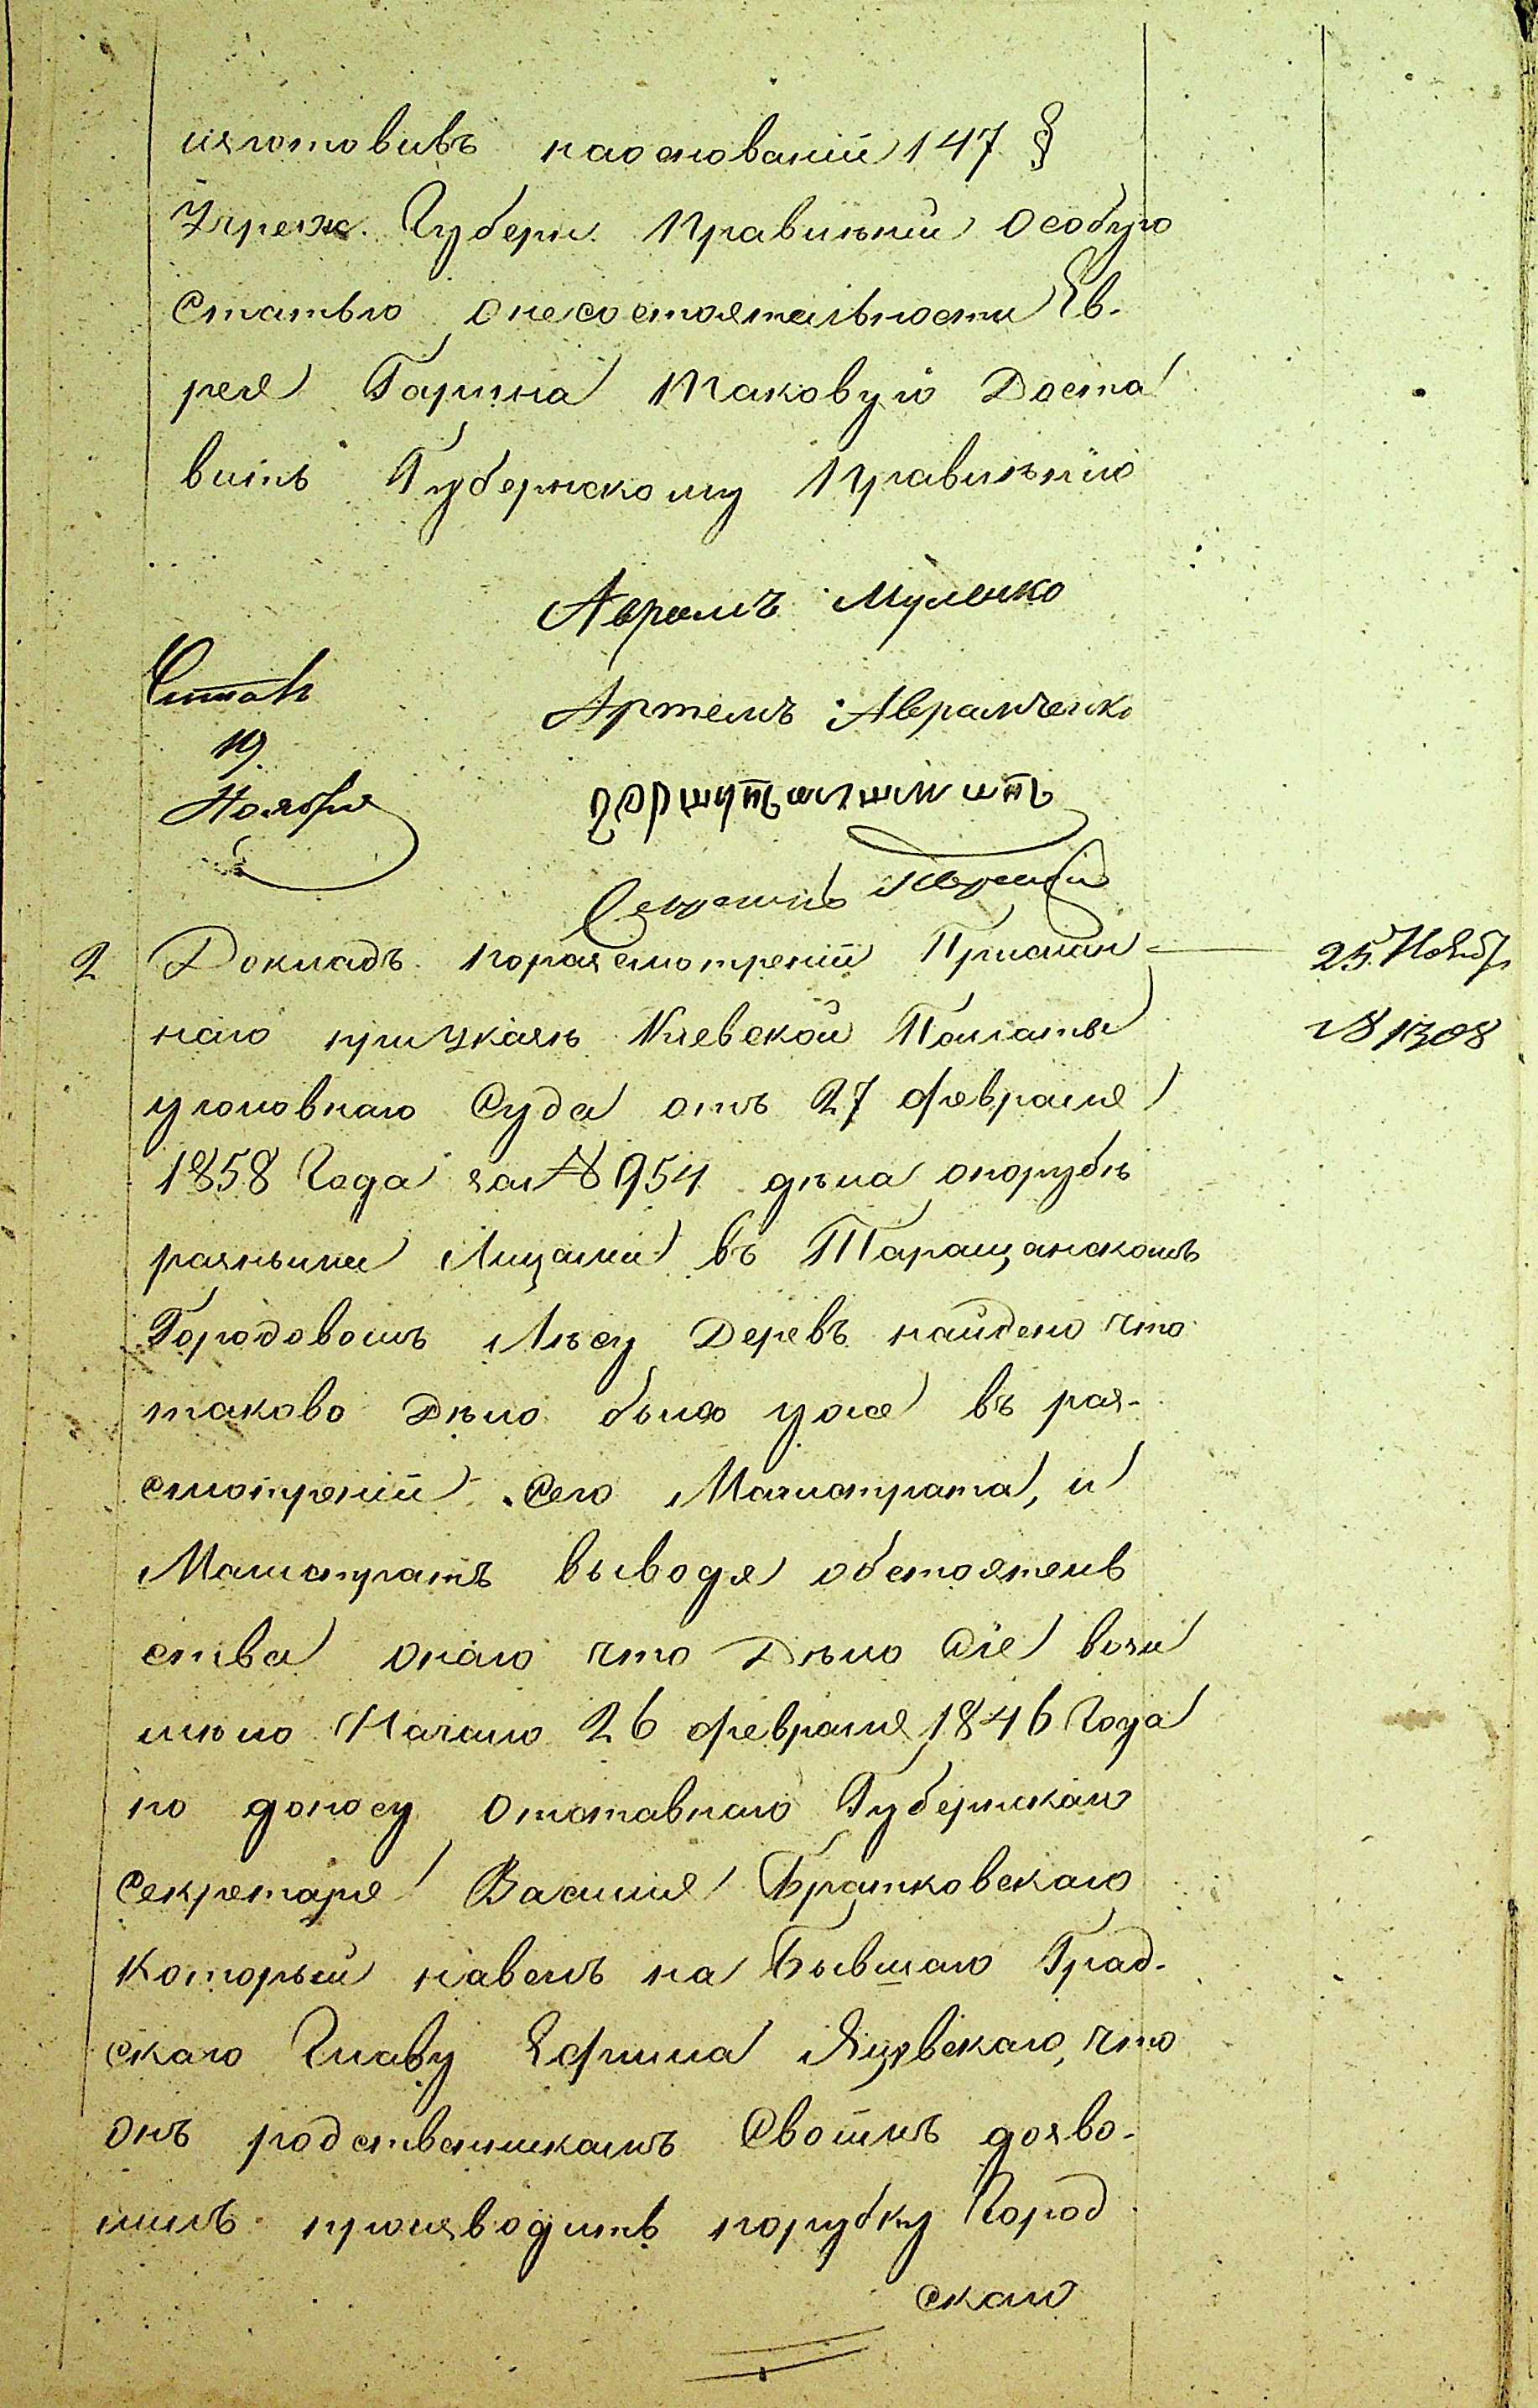 изготовивъ наоснованіи 147 §
Учреж. Губерн. Правленій Особую
Статью онесостоятельности Ев-
рея Гарина Таковую Доста
вить Губернскому Правленію
Аврамъ Муленко
Читалъ
Артемъ Аврамченко
19.
Ноября
2 Докладъ. поразсмотреніи Прислан 25. Нояб.
наго приуказѣ Кіевской Палаты № 1308
уголовнаго Суда отъ 27 февраля
1858 Года за № 954 дѣла опорубкѣ
разными Лицами въ Таращанскомъ
Городовомъ Лѣсу Деревъ найдено что
таково Дѣло было уже въ раз-
смотреніи Сего Магистрата, и
Магистратъ выводя обстоятель
ства онаго что Дѣло Сіе возы
мѣло Начало 26 февраля 1846 Года
по доносу Отставнаго Губернскаго
Секретаря Василія Братковскаго
который навелъ на Бывшаго Град-
скаго Главу Ефима Яцевскаго, что
онъ родственникамъ Своимъ дозво-
лилъ производить порубку Город
скаго